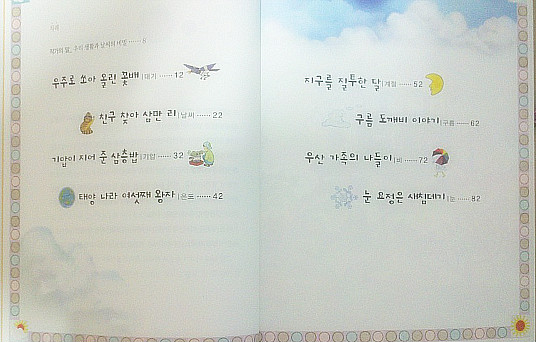 차례
작가의 말_ 우리 생활과 날씨의 비밀 ······ 8
우주로 쏘아 올린 꽃배 | 대기 ······ 12
친구 찾아 삼만 리 | 날씨 ······ 22
기압이 지어 준 삼층밥 | 기압 ······ 32
태양 나라 여섯째 왕자 | 온도 ······ 42
지구를 질투한 달 | 계절 ······ 52
구름 도깨비 이야기 | 구름 ······ 62
우산 가족의 나들이 | 비 ······ 72
눈 요정은 새침데기 | 눈 ······ 82